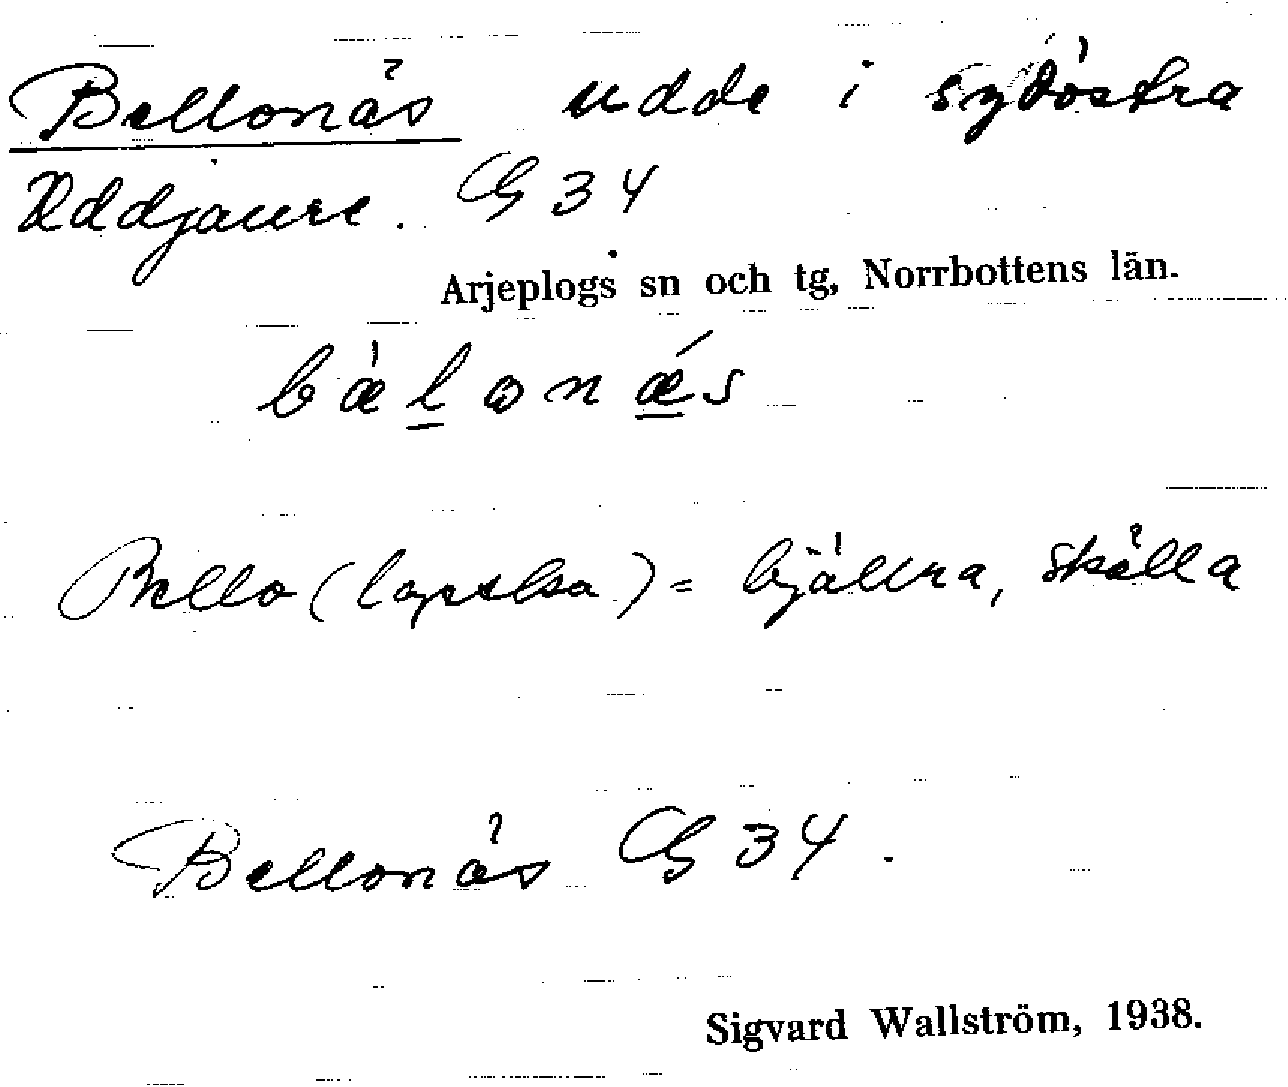 Bellonäs udde i sydöstra
Uddjaure. G 34
Arjeplogs sn och tg, Norrbottens län.
bæ̀lonǽs
Bello (lapska) = bjällra, skälla
Bellonäs G 34.
Sigvard Wallström, 1938.